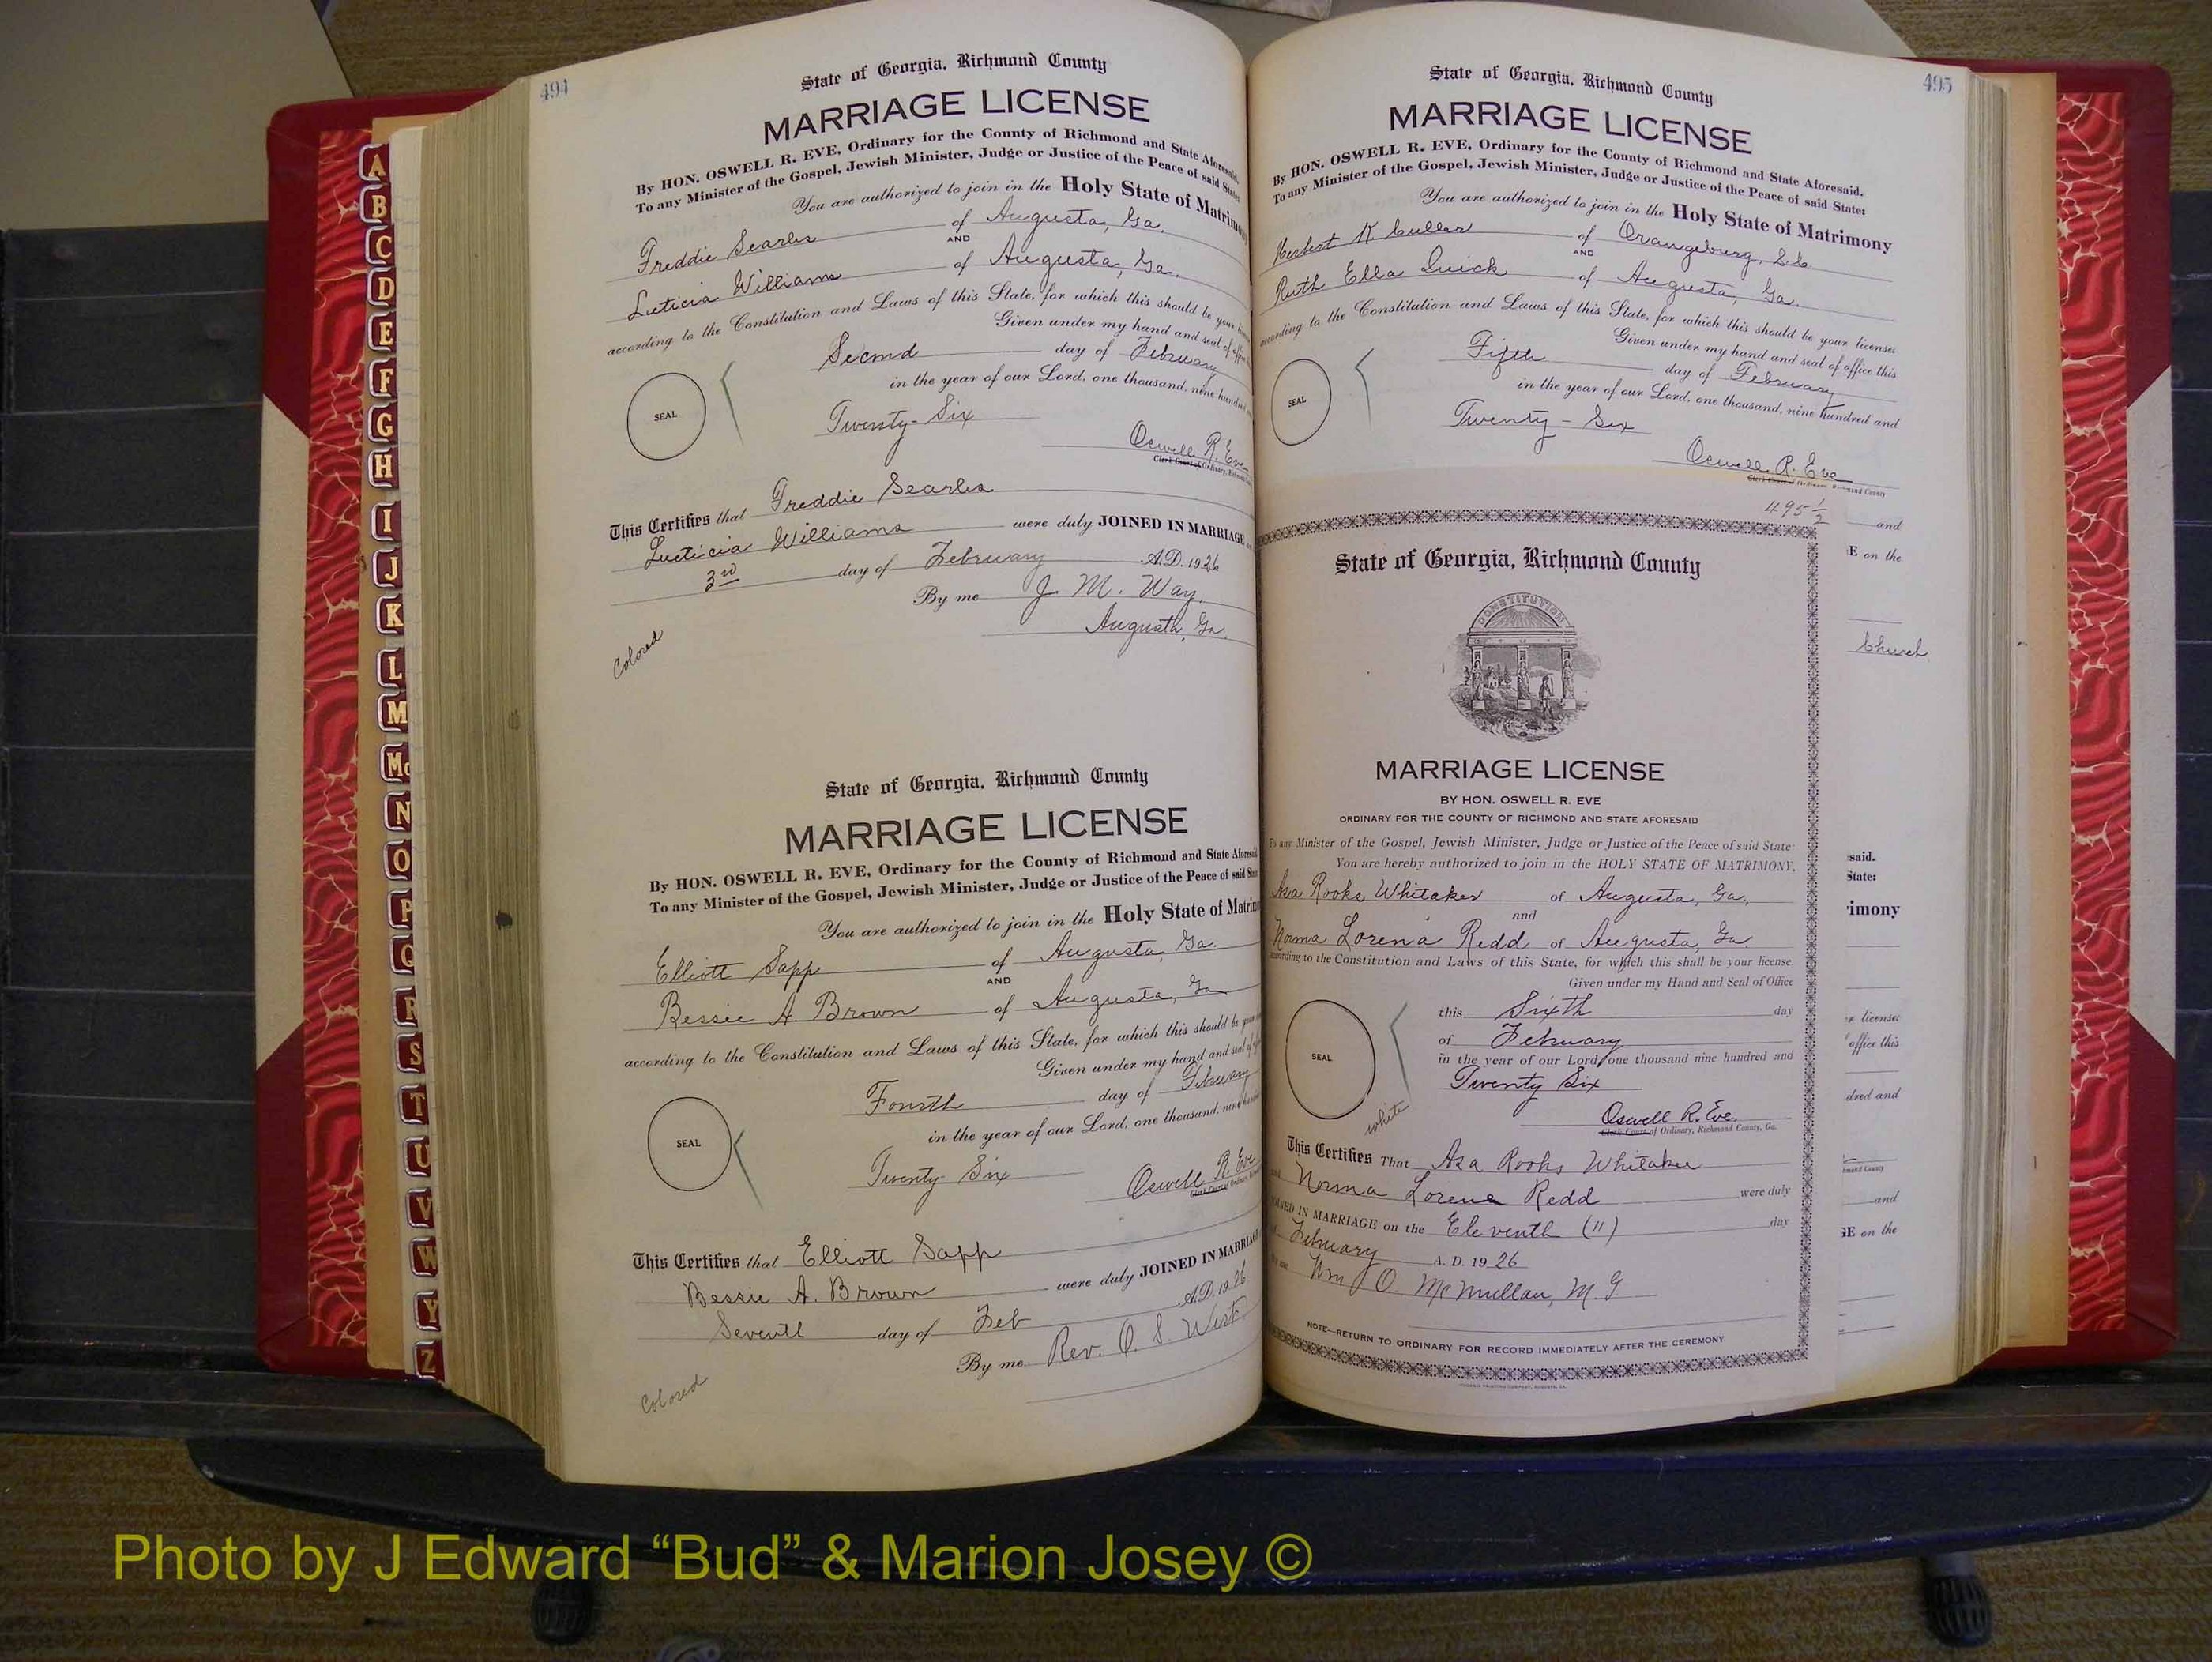 494
State of Georgia, Richmond County
MARRIAGE LICENSE
By HON. OSWELL R. EVE, Ordinary for the County of Richmond and State Aforesaid.
To any Minister of the Gospel, Jewish Minister, Judge or Justice of the Peace of said State
You are authorized to join in the Holy State of Matrimony
Freddie Searles of Augusta, Ga.
AND
Luticia Williams of Augusta, Ga.
according to the Constitution and Laws of this State, for which this should be your
Given under my hand and seal of
Second day of February
in the year of our Lord, one thousand, nine hundred
SEAL
Twenty-Six
Oswell R. Eve
Clerk Court of Ordinary, Richmond
This Certifies that Freddie Searles
Lueticia Williams were duly JOINED IN MARRIAGE
3rd day of February A.D. 1926
By me J. M. Way,
Augusta, Ga.
Colored
State of Georgia, Richmond County
MARRIAGE LICENSE
By HON. OSWELL R. EVE, Ordinary for the County of Richmond and State Aforesaid
To any Minister of the Gospel, Jewish Minister, Judge or Justice of the Peace of said State
You are authorized to join in the Holy State of Matrimo
Elliott Sapp of Augusta, Ga.
AND
Bessie A. Brown of Augusta, Ga
according to the Constitution and Laws of this State, for which this should be your
Given under my hand and seal of
Fourth day of February
in the year of our Lord, one thousand, nine hundred
SEAL
Twenty Six
Oswell R. Eve
Clerk Court of Ordinary,
This Certifies that Elliott Sapp
Bessie A. Brown were duly JOINED IN MARRIAGE
Seventh day of Feb A.D. 1926
By me Rev. O. S. West
Colored
495
State of Georgia, Richmond County
MARRIAGE LICENSE
By HON. OSWELL R. EVE, Ordinary for the County of Richmond and State Aforesaid.
To any Minister of the Gospel, Jewish Minister, Judge or Justice of the Peace of said State:
You are authorized to join in the Holy State of Matrimony
Herbert K. Culler of Orangeburg, S.C.
AND
Ruth Ella Quick of Augusta, Ga.
according to the Constitution and Laws of this State, for which this should be your license:
Given under my hand and seal of office this
Fifth day of February
in the year of our Lord, one thousand, nine hundred and
SEAL
Twenty-Six
Oswell R. Eve
Clerk Court of Ordinary, Richmond County
495 1/2
State of Georgia, Richmond County
CONSTITUTION
MARRIAGE LICENSE
BY HON. OSWELL R. EVE
ORDINARY FOR THE COUNTY OF RICHMOND AND STATE AFORESAID
To any Minister of the Gospel, Jewish Minister, Judge or Justice of the Peace of said State:
You are hereby authorized to join in the HOLY STATE OF MATRIMONY,
Asa Rooks Whitaker of Augusta, Ga.,
and
Norma Lorena Redd of Augusta, Ga
according to the Constitution and Laws of this State, for which this shall be your license.
Given under my Hand and Seal of Office
this Sixth day
of February
in the year of our Lord, one thousand nine hundred and
SEAL
Twenty Six
Oswell R. Eve.
Clerk Court of Ordinary, Richmond County, Ga.
white
This Certifies That Asa Rooks Whitaker
and Norma Lorena Redd were duly
JOINED IN MARRIAGE on the Eleventh (11) day
of February A. D. 1926
By me Wm O. McMullan, M. G
NOTE—RETURN TO ORDINARY FOR RECORD IMMEDIATELY AFTER THE CEREMONY
and
E on the
Church
said.
State:
imony
license:
office this
dred and
mond County
and
GE on the
A
B
C
D
E
F
G
H
I
J
K
L
M
Mc
N
O
P
Q
R
S
T
U
V
W
Y
Z
Photo by J Edward “Bud” & Marion Josey ©